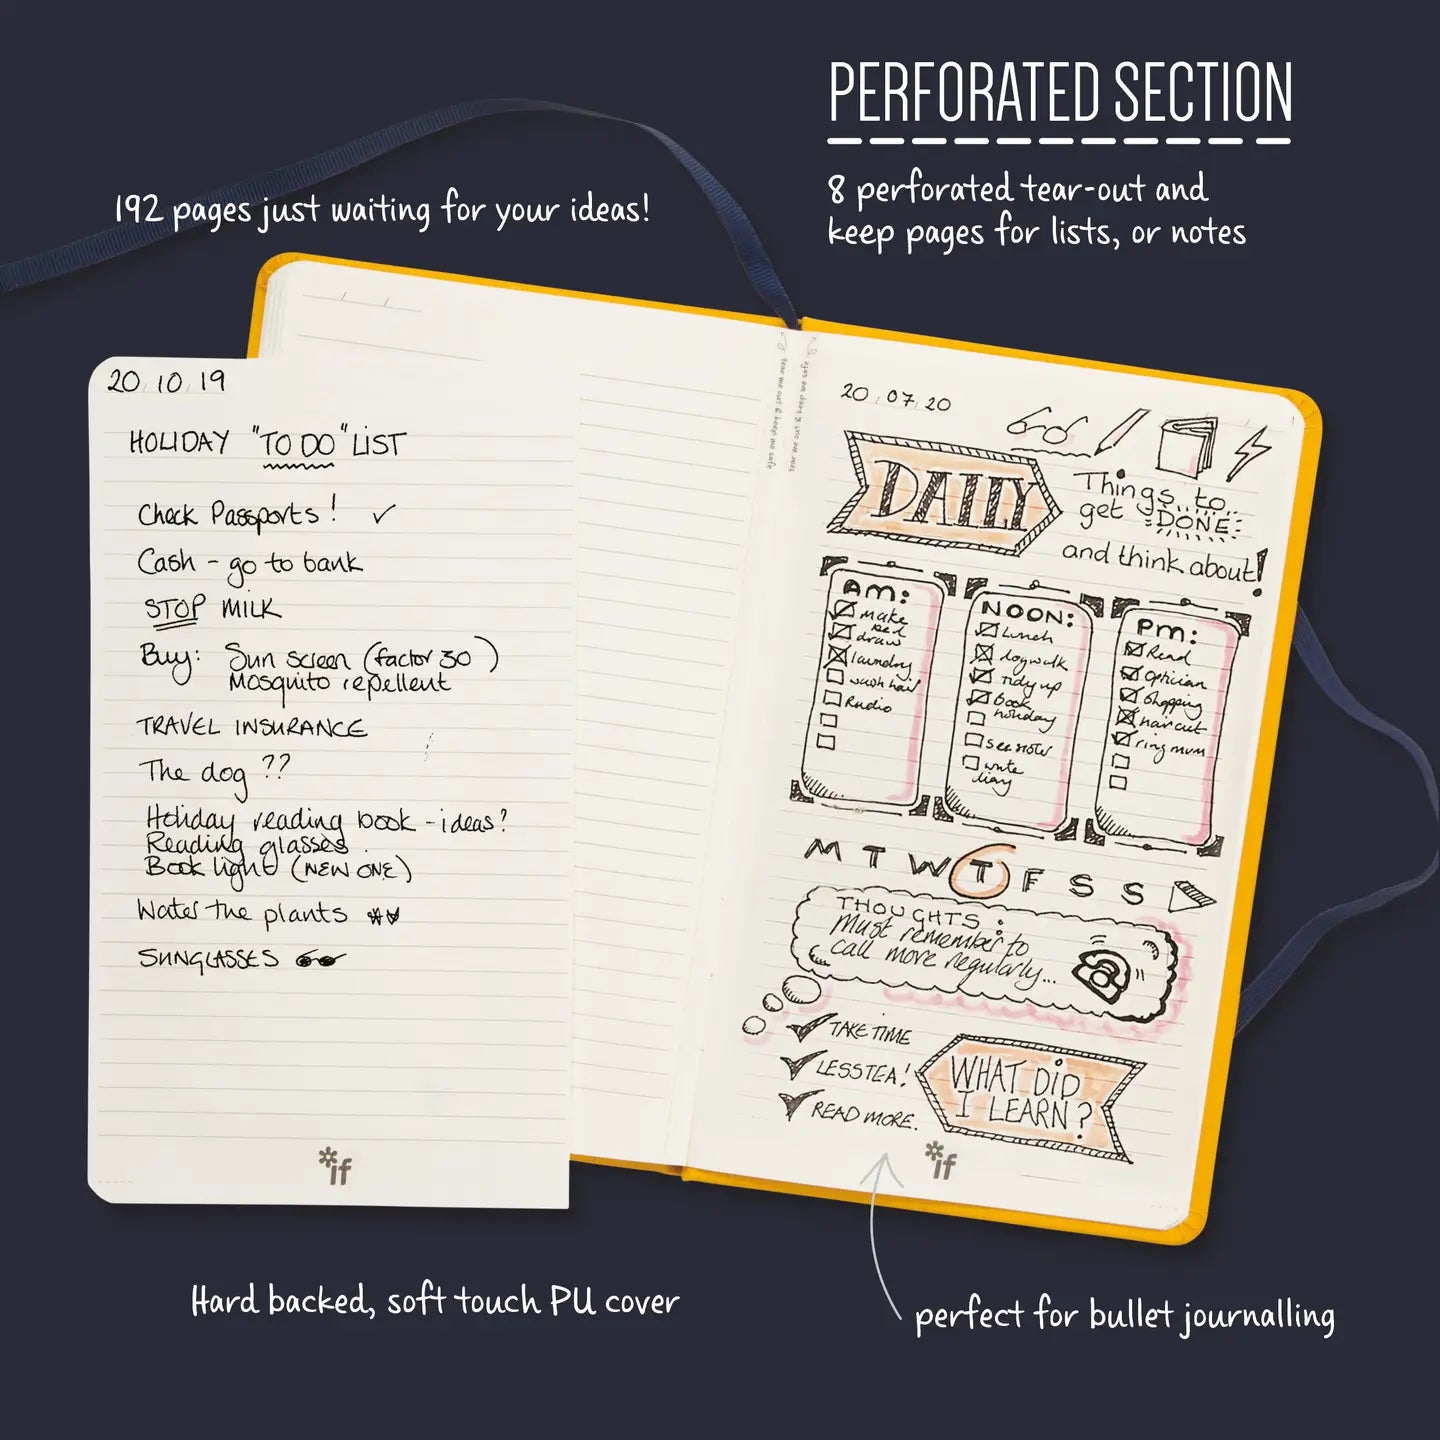 PERFORATED SECTION
8 perforated tear-out and
keep pages for lists, or notes
192 pages just waiting for your ideas!
20 10 19
HOLIDAY "TO DO" LIST
Check Passports! ✓
Cash - go to bank
STOP MILK
Buy: Sun screen (factor 30)
Mosquito repellent
TRAVEL INSURANCE
The dog ??
Holiday reading book - ideas?
Reading glasses.
Book light (NEW ONE)
Water the plants
SUNGLASSES
*if
tear me out & keep me safe
tear me out & keep me safe
20 07 20
DAILY
Things to
get DONE
and think about!
AM:
make
bed
draw
laundry
wash hair
Radio
NOON:
Lunch
dogwalk
Tidy up
book
holiday
write
diary
PM:
Read
optician
Shopping
haircut
ring mum
M T W T F S S
THOUGHTS:
Must remember to
call more regularly...
TAKE TIME
LESS TEA!
READ MORE.
WHAT DID
I LEARN?
*if
Hard backed, soft touch PU cover
perfect for bullet journalling